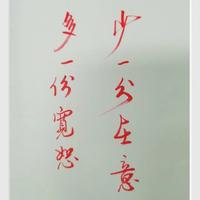 少一分在意
多一份寬恕